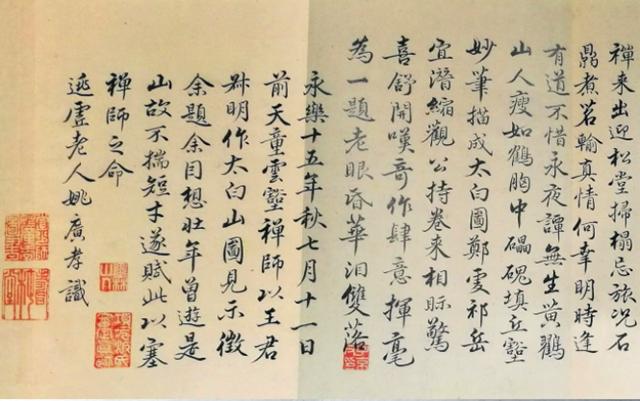 禪来出迎松堂掃榻忌旅况石
鼎煮茗輸真情何幸明時逢
有道不惜永夜譚無生黃鶴
山人瘦如鶴胸中礧磈填丘壑
妙筆描成太白圖鄭虔祁岳
宜潛縮觀公持卷来相示驚
喜舒開嘆奇作肆意揮毫
為一題老眼昏華泪雙落
永樂十五年秋七月十一日
前天童雲壑禪師以王君
叔明作太白山圖見示徵
余題余目想壮年曾遊是
山故不揣短才遂賦此以塞
禪師之命
逃虛老人姚廣孝識